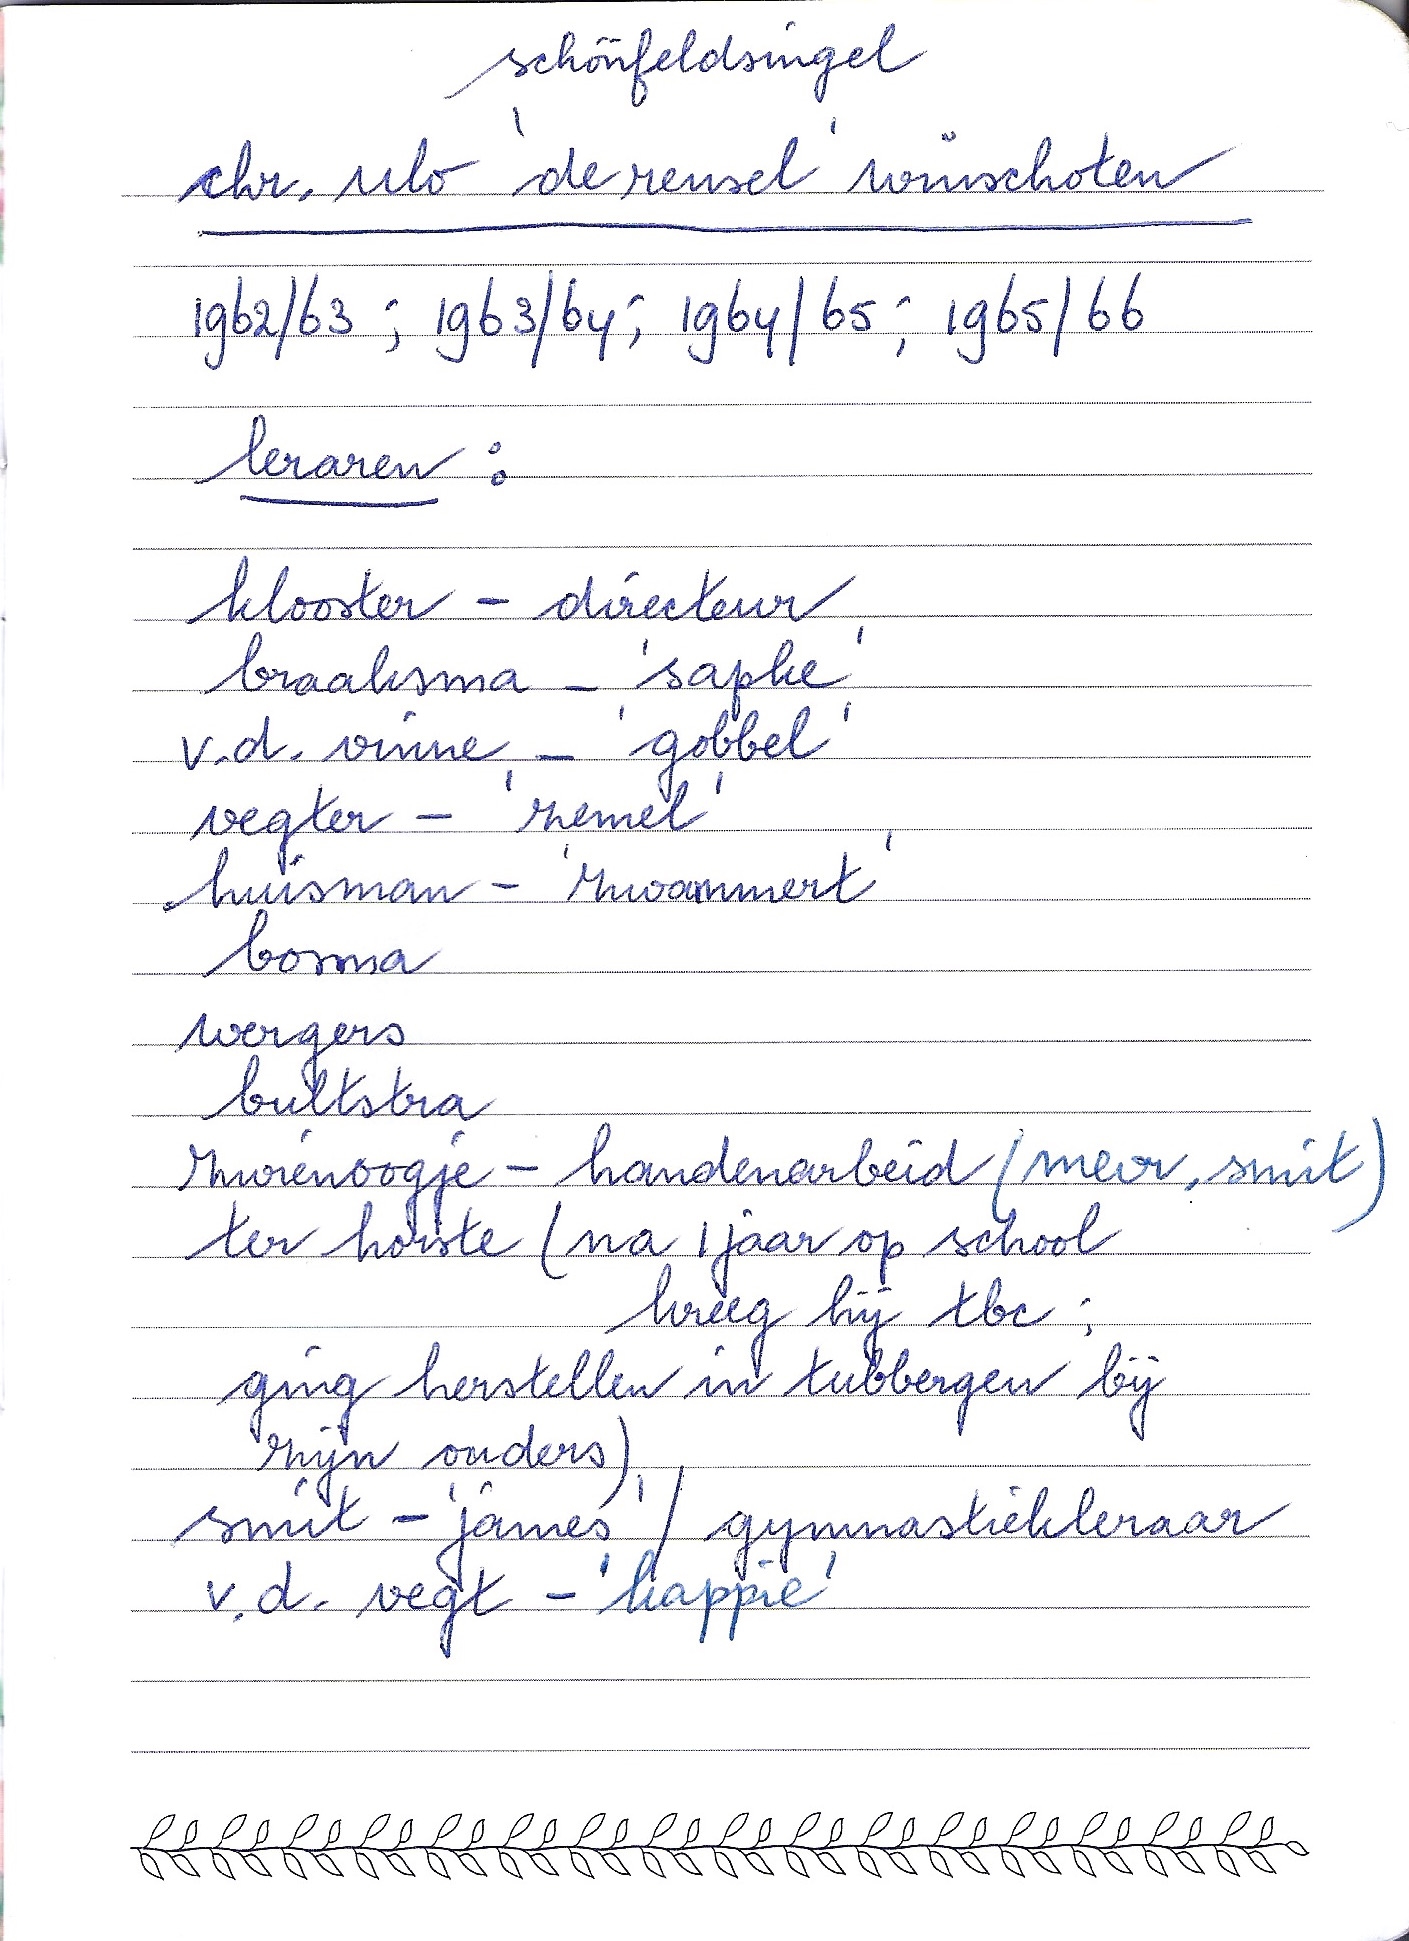 schönfeldsingel
chr. ulo 'de rensel' winschoten
1962/63 ; 1963/64 ; 1964/65 ; 1965/66
leraren :
klooster - directeur
braaksma - 'sapke'
v.d. vinne - 'gobbel'
vegter - 'zemel'
huisman - 'zwammert'
bosma
wergers
bultstra
zwienoogje - handenarbeid (mevr. smit)
ter horste (na 1 jaar op school
kreeg hij tbc ;
ging herstellen in tubbergen bij
zijn ouders)
smit - 'james' / gymnastiekleraar
v.d. vegt - 'kappie'